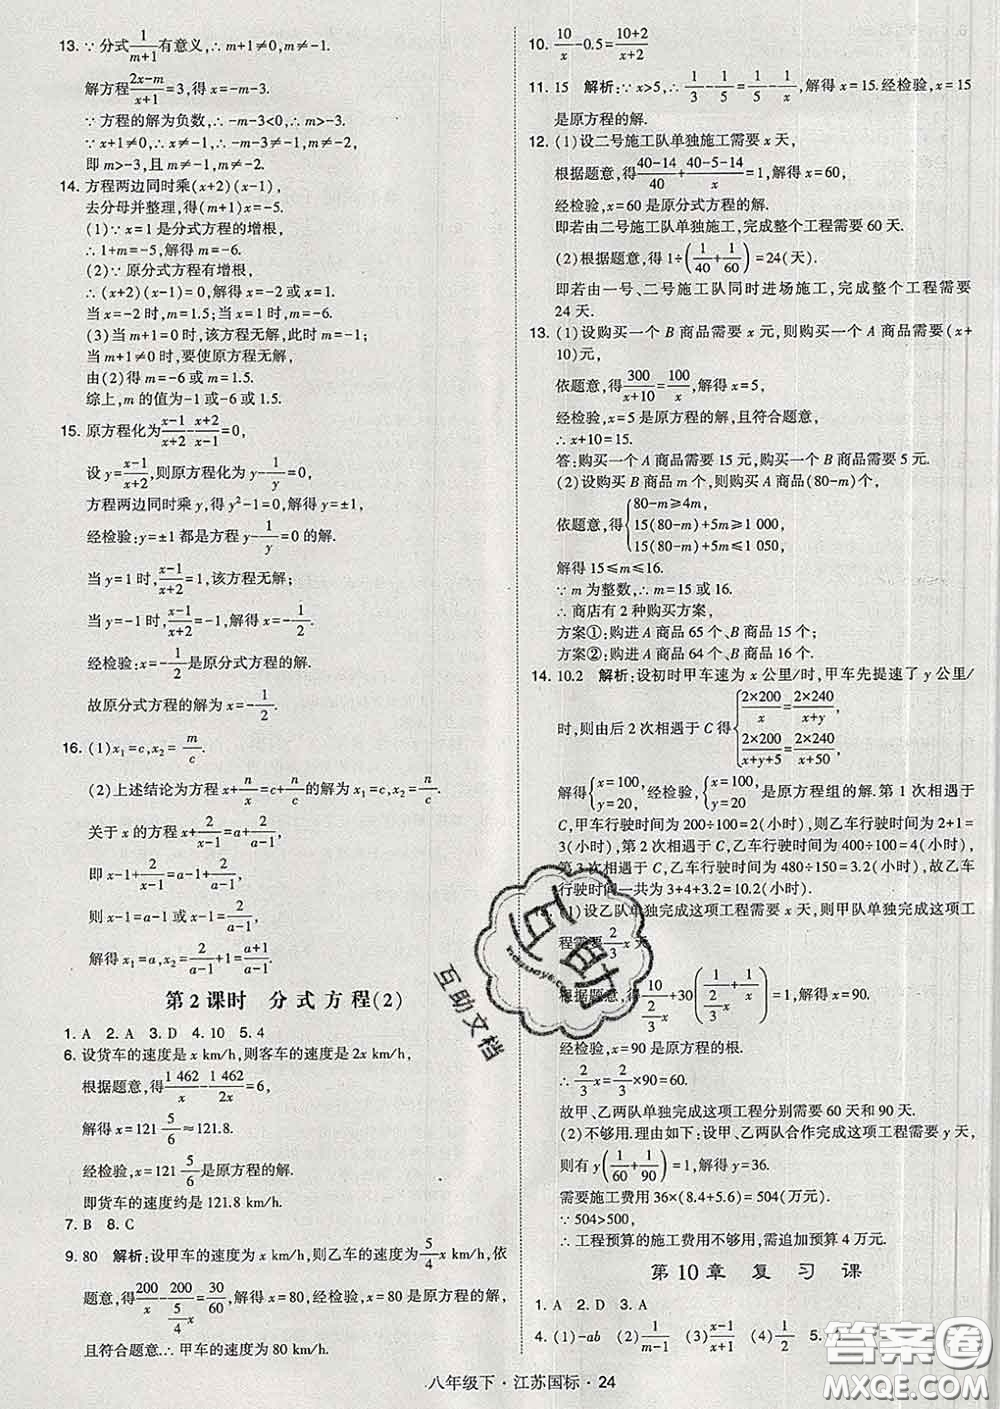 13. ∵分式1/(m+1)有意义,∴m+1≠0,m≠-1.
解方程(2x-m)/(x+1)=3,得x=-m-3.
∵方程的解为负数,∴-m-3<0,∴m>-3,
∵x+1≠0,∴x≠-1,∴-m-3≠-1,m≠-2,
即m>-3,且m≠-1,m≠-2.
14. 方程两边同时乘(x+2)(x-1),
去分母并整理,得(m+1)x=-5.
(1)∵x=1是分式方程的增根,
∴1+m=-5,解得m=-6.
(2)∵原分式方程有增根,
∴(x+2)(x-1)=0,解得x=-2或x=1.
当x=-2时,m=1.5;当x=1时,m=-6.
(3)当m+1=0时,该方程无解,此时m=-1.
当m+1≠0时,要使原方程无解,
由(2)得m=-6或m=1.5.
综上,m的值为-1或-6或1.5.
15. 原方程化为(x-1)/(x+2)-(x+2)/(x-1)=0,
设y=(x-1)/(x+2),则原方程化为y-1/y=0,
方程两边同时乘y,得y²-1=0,解得y=±1,
经检验:y=±1都是方程y-1/y=0的解.
当y=1时,(x-1)/(x+2)=1,该方程无解;
当y=-1时,(x-1)/(x+2)=-1,解得x=-1/2.
经检验:x=-1/2是原分式方程的解,
故原分式方程的解为x=-1/2.
16. (1)x₁=c,x₂=m/c.
(2)上述结论为方程x+n/x=c+n/c的解为x₁=c,x₂=n/c,
关于x的方程x+2/(x-1)=a+2/(a-1),
即x-1+2/(x-1)=a-1+2/(a-1),
则x-1=a-1或x-1=2/(a-1),
解得x₁=a,x₂=2/(a-1)+1=(a+1)/(a-1).
第2课时 分式方程(2)
1. A 2. A 3. D 4. 10 5. 4
6. 设货车的速度是x km/h,则客车的速度是2x km/h,
根据题意,得1 462/x-1 462/2x=6,
解得x=121 5/6≈121.8.
经检验,x=121 5/6是原方程的解.
即货车的速度约是121.8 km/h.
7. B 8. C
9. 80 解析:设甲车的速度为x km/h,则乙车的速度为5/4 x km/h,依
题意,得200/x-200/(5/4 x)=30/60,解得x=80,经检验,x=80是原方程的解,
且符合题意.∴甲车的速度为80 km/h.
10. 10/x-0.5=(10+2)/(x+2)
11. 15 解析:∵x>5,∴1/3-1/5=1/5-1/x,解得x=15.经检验,x=15
是原方程的解.
12. (1)设二号施工队单独施工需要x天,
根据题意,得(40-14)/40+(40-5-14)/x=1,解得x=60,
经检验,x=60是原分式方程的解.
即若由二号施工队单独施工,完成整个工程需要60天.
(2)根据题意,得1÷(1/40+1/60)=24(天).
即若由一号、二号施工队同时进场施工,完成整个工程需要
24天.
13. (1)设购买一个B商品需要x元,则购买一个A商品需要(x+
10)元,
依题意,得300/(x+10)=100/x,解得x=5,
经检验,x=5是原方程的解,且符合题意,
∴x+10=15.
答:购买一个A商品需要15元,购买一个B商品需要5元.
(2)设购买B商品m个,则购买A商品(80-m)个,
依题意,得{80-m≥4m,
15(80-m)+5m≥1 000,
15(80-m)+5m≤1 050,
解得15≤m≤16.
∵m为整数,∴m=15或16.
∴商店有2种购买方案,
方案①:购进A商品65个、B商品15个;
方案②:购进A商品64个、B商品16个.
14. 10.2 解析:设初时甲车速为x公里/时,甲车先提速了y公里/
时,则由后2次相遇于C得{(2×200)/x=(2×240)/(x+y),
(2×200)/(x+y+5)=(2×240)/(x+50)
解得{x=100, y=20,经检验,{x=100, y=20是原方程组的解.第1次相遇于
C,甲车行驶时间为200÷100=2(小时),则乙车行驶时间为2+1=
3(小时),第2次相遇于C,乙车行驶时间为400÷100=4(小时),
第3次相遇于C,乙车行驶时间为480÷150=3.2(小时),故乙车
行驶时间一共为3+4+3.2=10.2(小时).
(1)设乙队单独完成这项工程需要x天,则甲队单独完成这项工
程需要2/3 x天
根据题意,得10/(2/3 x)+30(1/(2/3 x)+1/x)=1,解得x=90.
经检验,x=90是原方程的根.
∴2/3 x=2/3×90=60.
故甲、乙两队单独完成这项工程分别需要60天和90天.
(2)不够用.理由如下:设甲、乙两队合作完成这项工程需要y天,
则有y(1/60+1/90)=1,解得y=36.
需要施工费用36×(8.4+5.6)=504(万元).
∵504>500,
∴工程预算的施工费用不够用,需追加预算4万元.
第10章 复习课
1. A 2. D 3. A
4. (1)-ab (2)1/(m-1) (3)(x-1)/(x+1) (4)1/2 5.
八年级下·江苏国标·24
互助
互助文档
答案圈
MXQE.COM